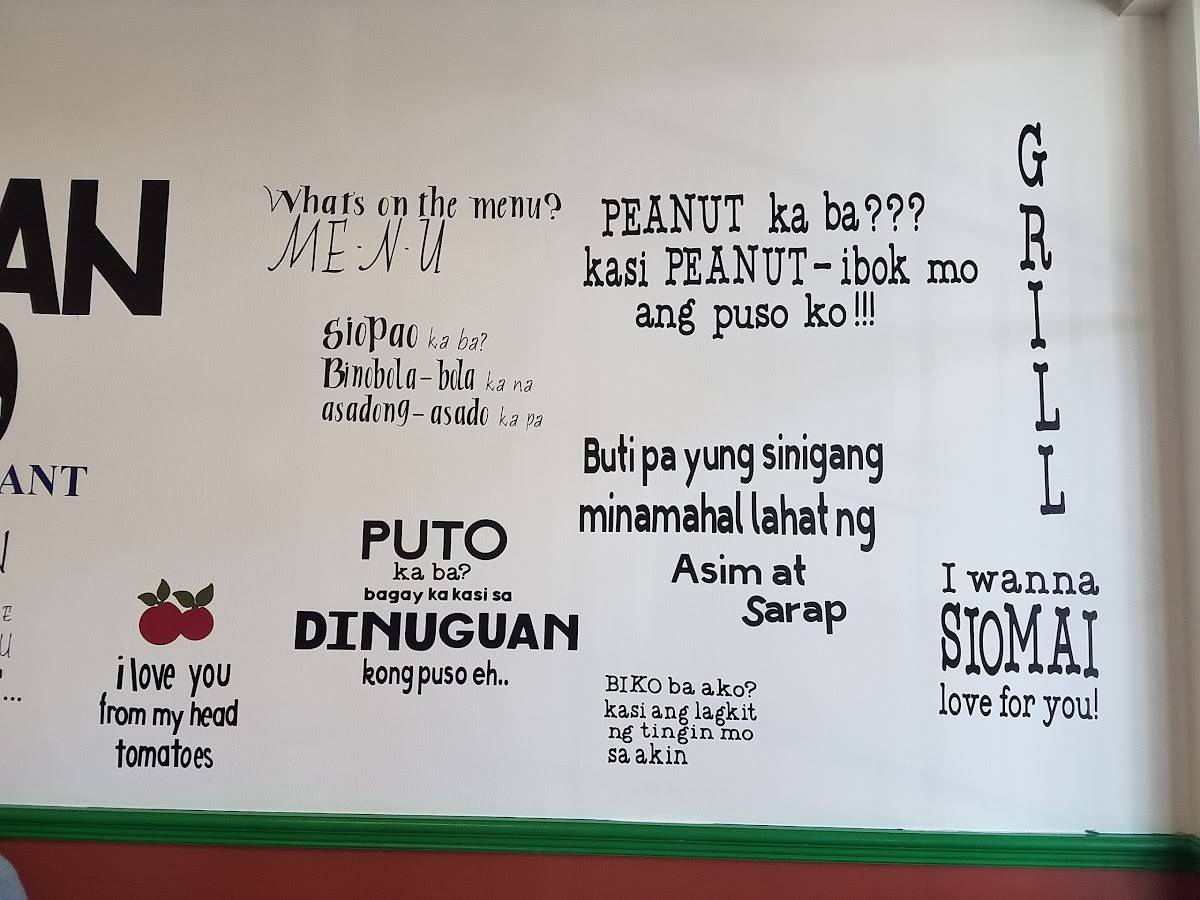 AN
ANT
What's on the menu?
ME·N·U
siopao ka ba?
Binobola-bola ka na
asadong-asado ka pa
PUTO
ka ba?
bagay ka kasi sa
DINUGUAN
kong puso eh..
i love you
from my head
tomatoes
PEANUT ka ba???
kasi PEANUT-ibok mo
ang puso ko!!!
Buti pa yung sinigang
minamahal lahat ng
Asim at
Sarap
BIKO ba ako?
kasi ang lagkit
ng tingin mo
sa akin
GRILL
I wanna
SIOMAI
love for you!